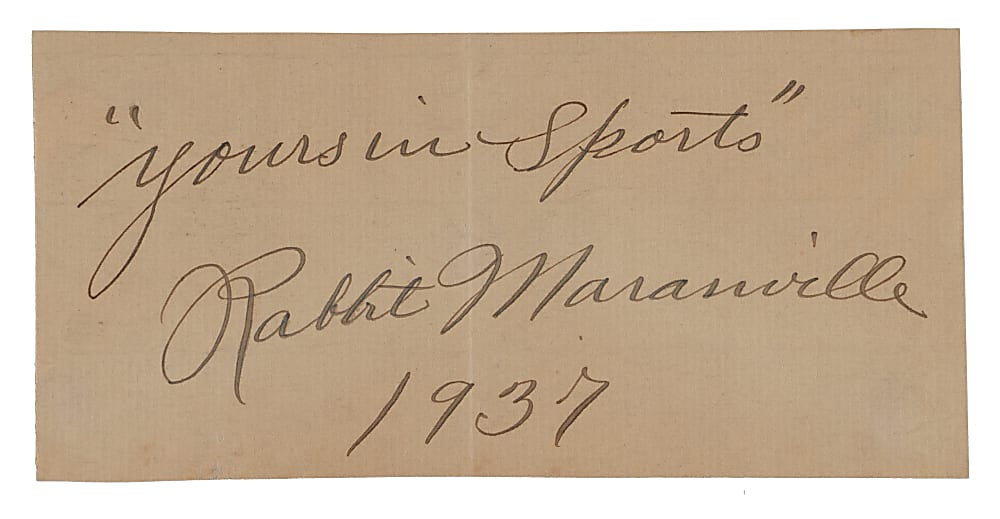 "yours in Sports"
Rabbit Maranville
1937